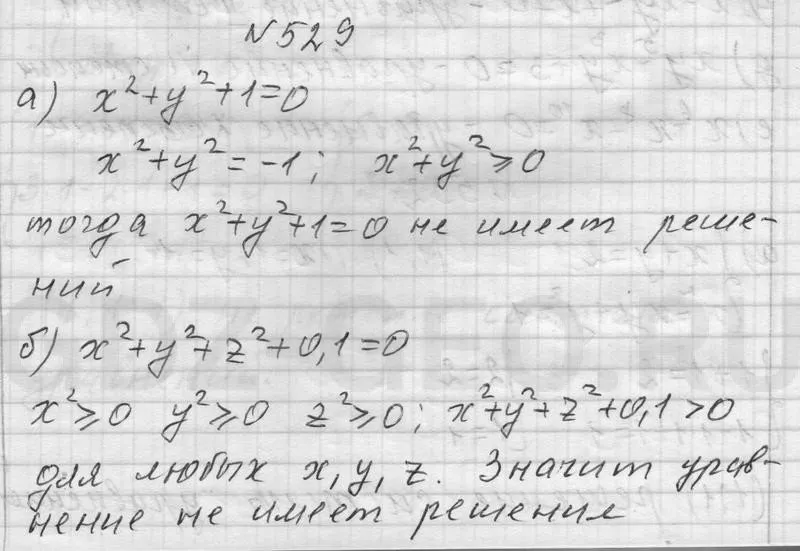 №529
а) x²+y²+1=0
x²+y²=-1; x²+y²⩾0
тогда x²+y²+1=0 не имеет реше-
ний
б) x²+y²+z²+0,1=0
x²⩾0 y²⩾0 z²⩾0; x²+y²+z²+0,1>0
для любых x, y, z. Значит урав-
нение не имеет решения